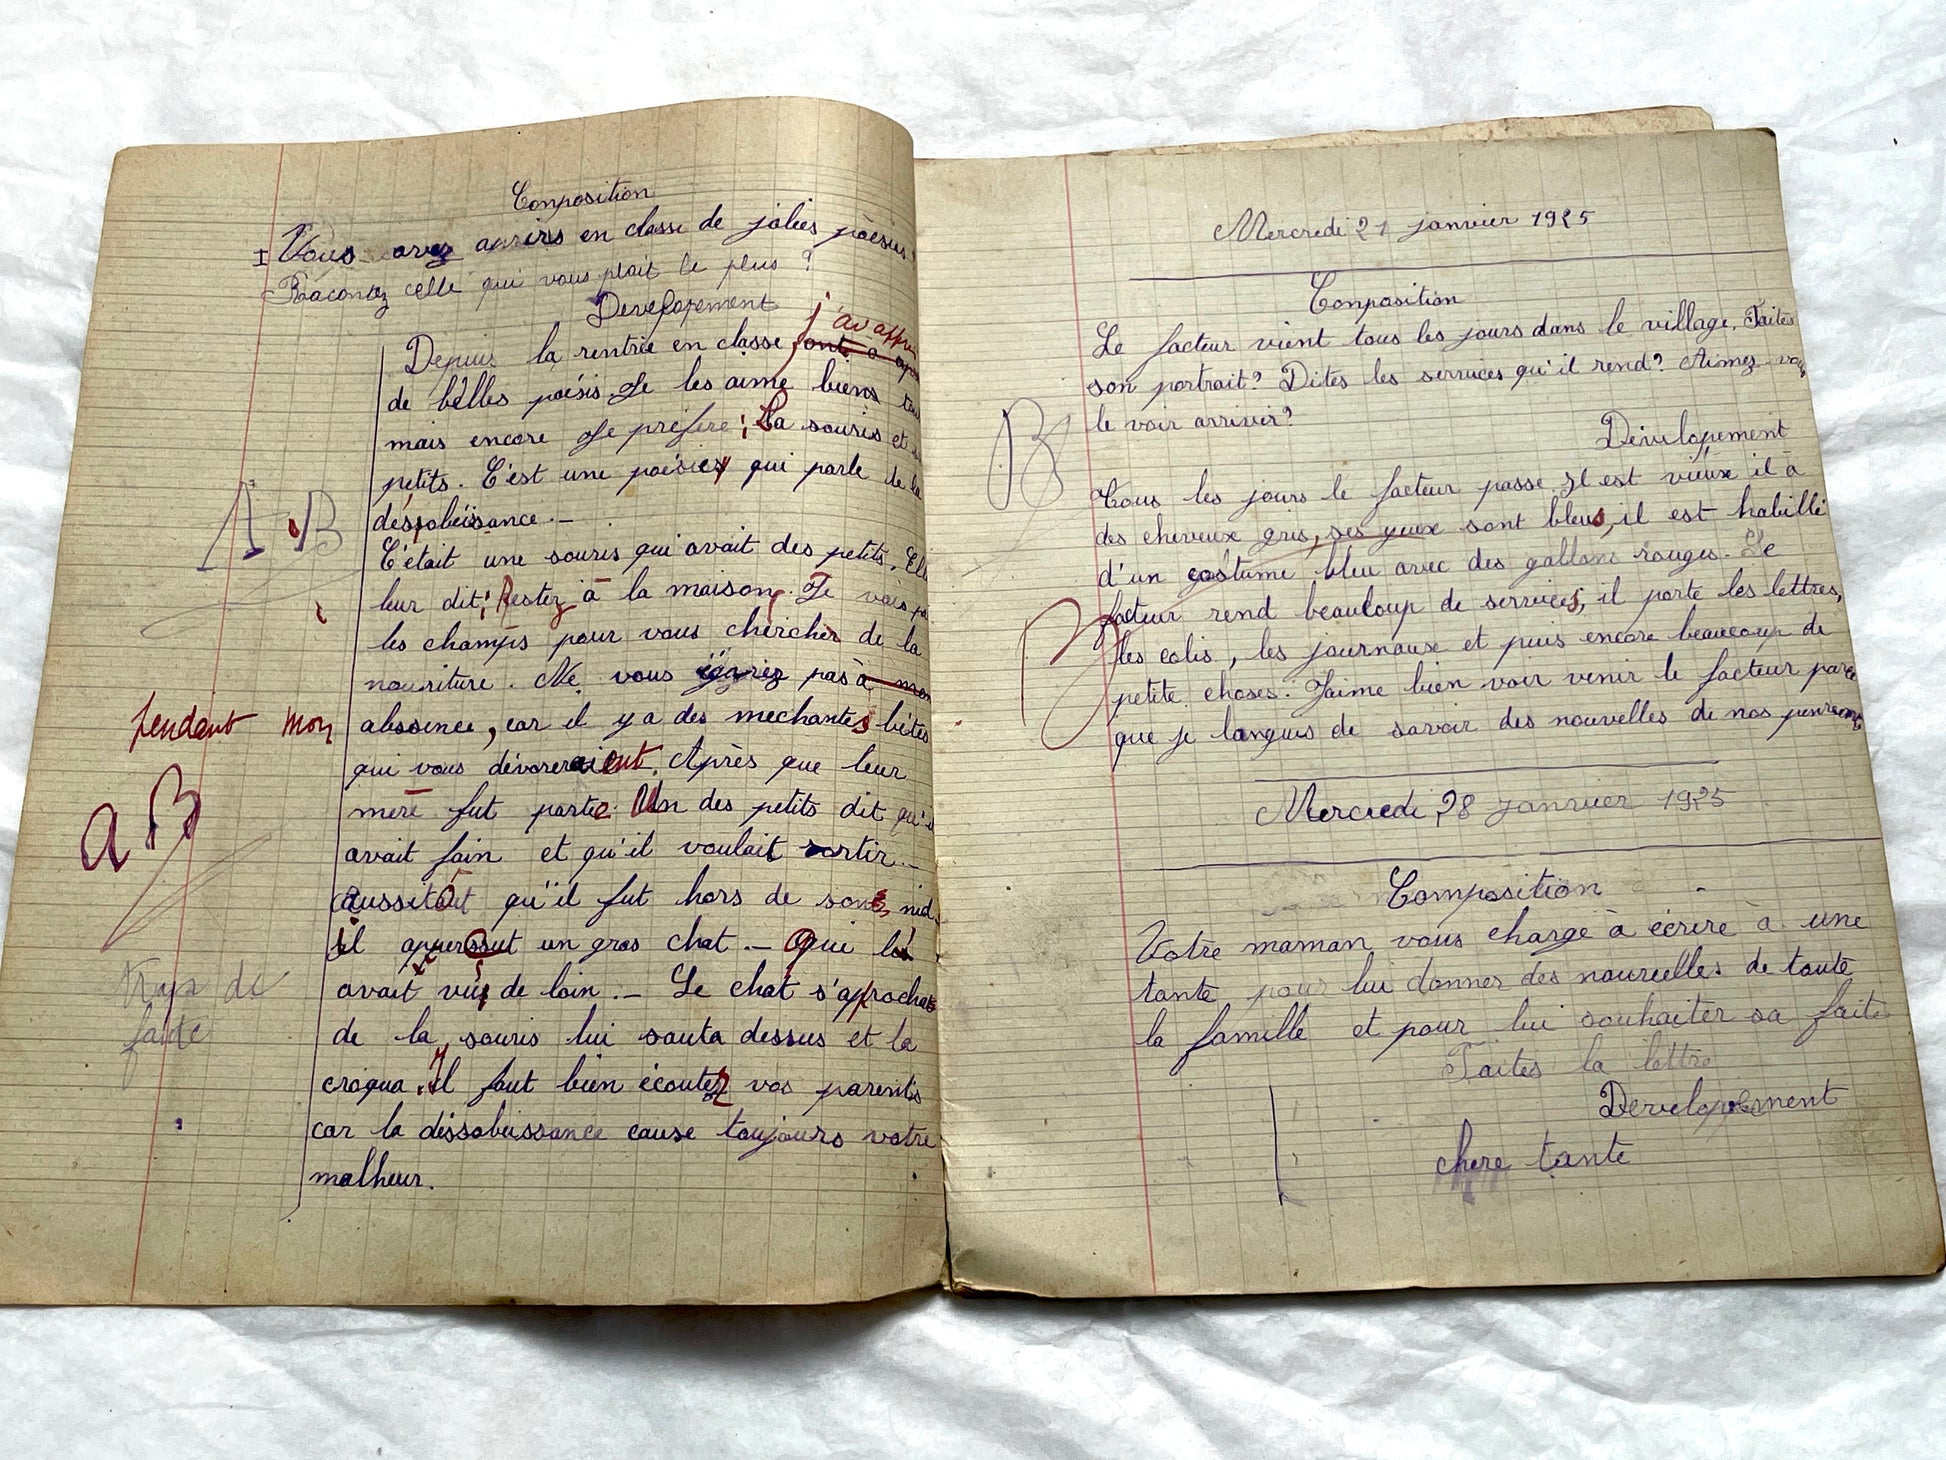 Composition
I Vous avez appris en classe de jolies poèsies ?
Racontez celle qui vous plait le plus ?
Developement
j'ai appris
Depuis la rentrée en classe
de bêlles poésis. Je les aime biens
mais encore Je préfère ; La souris et
petits. C'est une poésies qui parle de la
A B
désobéissance. _
C'était une souris qui avait des petits. Elle
leur dit ; Restez à la maison. Je vais
les champs pour vous chercher de la
nourriture. Ne vous égarez pas à mon
pendant mon
abssence, car il y a des mechantes bêtes
qui vous dévoreraient. Après que leur
mère fut partie. Un des petits dit qu'il
a B
avait faim et qu'il voulait sortir. _
aussitôt qu'il fut hors de son nid
il apperçut un gros chat. _ Qui la
avait vu de loin. _ Le chat s'approcha
trop de
fautes
de la souris lui sauta dessus et la
croqua. Il faut bien écoutez vos parents
car la déssobeissance cause toujours votre
malheur.
Mercredi 21 janvier 1925
Composition
Le facteur vient tous les jours dans le village. Faites
son portrait ? Dites les services qu'il rend ? Aimez vous
le voir arriver ?
B
Dévelopement
Tous les jours le facteur passe Il est vieux il à
des cheveux gris, ses yeux sont bleus, il est habillé
d'un costume bleu avec des gallons rouges. Le
facteur rend beaucoup de services, il porte les lettres,
B
les colis, les journaux et puis encore beaucoup de
petite choses. J'aime bien voir venir le facteur parce
que je languis de savoir des nouvelles de nos
Mercredi 28 janvier 1925
Composition
Votre maman vous charge à écrire à une
tante pour lui donner des nouvelles de toute
la famille et pour lui souhaiter sa faite
Faites la lettre
Developement
chere tante